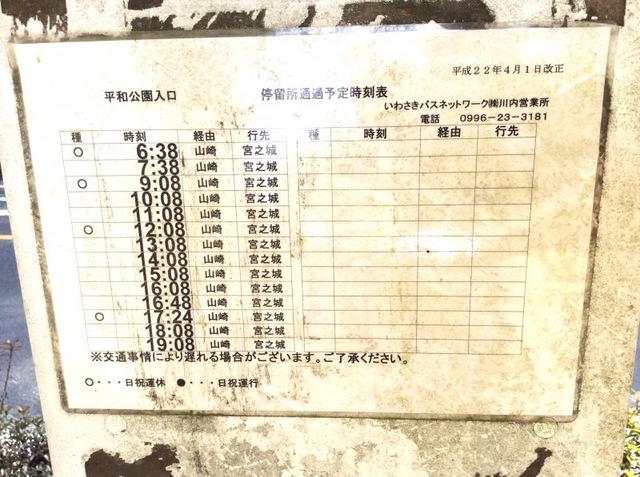 平成22年4月1日改正
平和公園入口 停留所通過予定時刻表
いわさきバスネットワーク㈱川内営業所
電話 0996-23-3181
種 時刻 経由 行先 種 時刻 経由 行先
○ 6:38 山崎 宮之城
7:38 山崎 宮之城
○ 9:08 山崎 宮之城
10:08 山崎 宮之城
11:08 山崎 宮之城
○ 12:08 山崎 宮之城
13:08 山崎 宮之城
14:08 山崎 宮之城
15:08 山崎 宮之城
16:08 山崎 宮之城
16:48 山崎 宮之城
○ 17:24 山崎 宮之城
18:08 山崎 宮之城
19:08 山崎 宮之城
※交通事情により遅れる場合がございます。ご了承ください。
○・・・日祝運休 ●・・・日祝運行